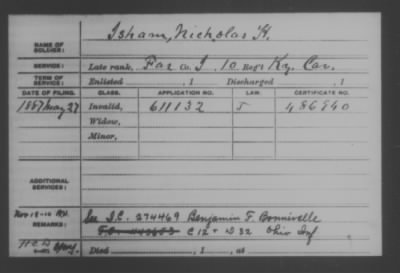 Isham, Nicholas H.
NAME OF SOLDIER:
SERVICE: Late rank, Far Co. I, 10 Reg't Ky. Cav.
TERM OF SERVICE: Enlisted , 1 Discharged , 1
DATE OF FILING. CLASS. APPLICATION NO. LAW. CERTIFICATE NO.
1887 May 27 Invalid, 611132 J 486840
Widow,
Minor,
ADDITIONAL SERVICES:
REMARKS: See I.C. 274469 Benjamin F. Bonnivelle
C 12 + D 32 Ohio Inf
Died , 1 , at